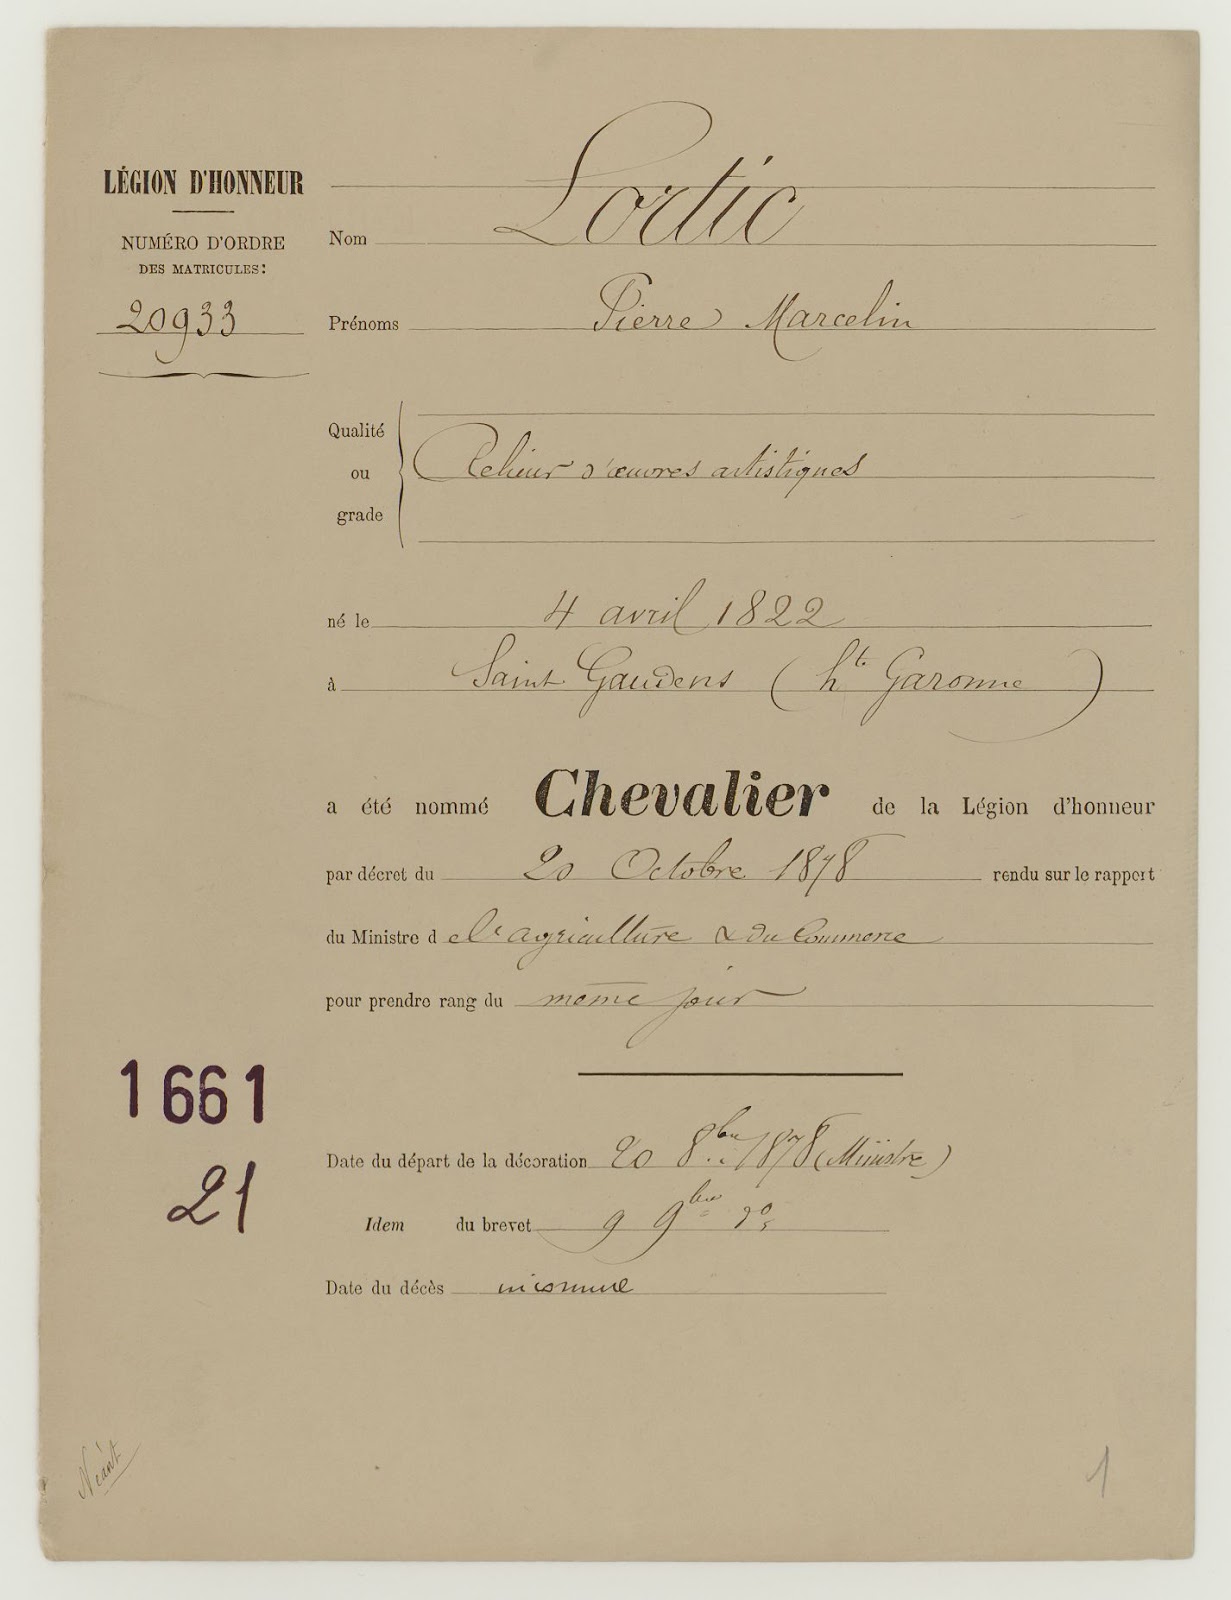 LÉGION D'HONNEUR
NUMÉRO D'ORDRE
DES MATRICULES:
20933
Nom Lortic
Prénoms Pierre Marcelin
Qualité
ou
grade
Relieur d'œuvres artistiques
né le 4 avril 1822
à Saint Gaudens (hte Garonne)
a été nommé Chevalier de la Légion d'honneur
par décret du 20 Octobre 1878 rendu sur le rapport
du Ministre de l'agriculture & du Commerce
pour prendre rang du même jour
1661
21
Date du départ de la décoration 20 8bre 1878 (Ministre)
Idem du brevet 9 9bre
Date du décès inconnue
Néant
1